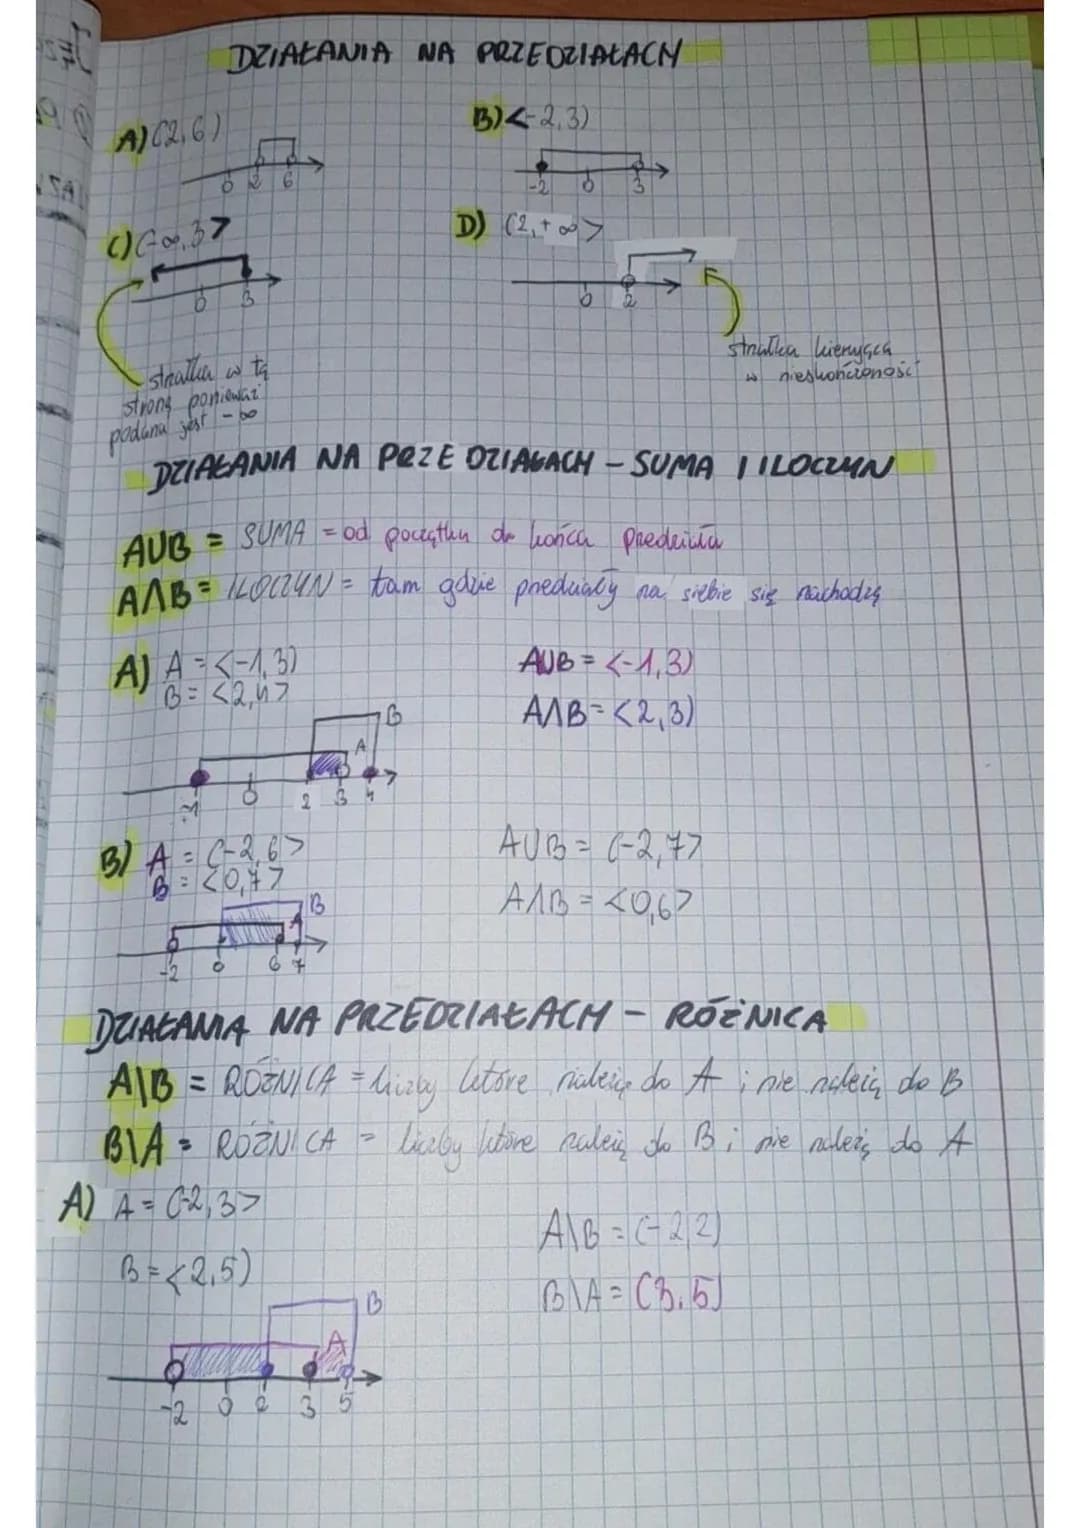 DZIAŁANIA NA PRZEDZIAŁACH
A) (2,6)
0 2 6
B) <-2,3)
-2 0 3
C) (-∞,3>
0 3
D) (2,+∞>
0 2
strzałka w tą
stronę ponieważ
podana jest -∞
strzałka kierująca
w nieskończoność
DZIAŁANIA NA PRZEDZIAŁACH - SUMA I ILOCZYN
A∪B = SUMA = od początku do końca przedziału
A∩B = ILOCZYN = tam gdzie przedziały na siebie się nachodzą
A) A = <-1,3)
B = <2,4>
A∪B = <-1,3)
A∩B = <2,3)
B
A
-1 0 2 3 4
B) A = (-2,6>
B = <0,7>
A∪B = (-2,7>
A∩B = <0,6>
B
A
-2 0 6 7
DZIAŁANIA NA PRZEDZIAŁACH - RÓŻNICA
A\B = RÓŻNICA = liczby które należą do A i nie należą do B
B\A = RÓŻNICA = liczby które należą do B i nie należą do A
A) A = (-2,3>
B = <2,5)
A\B = (-2,2)
B\A = (3,5)
B
A
-2 0 2 3 5